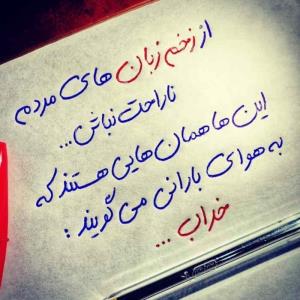 از زخم زبان های مردم
ناراحت نباش...
این ها همان هایی هستند که
به هوای بارانی می گویند :
خراب ...